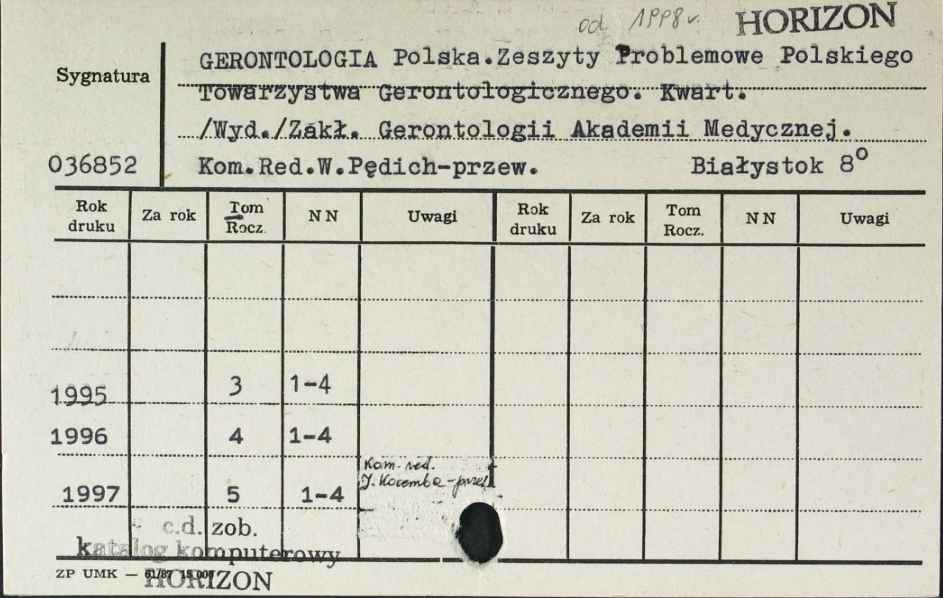 od 1998 r. HORIZON
Sygnatura
GERONTOLOGIA Polska.Zeszyty Problemowe Polskiego
Towarzystwa Gerontologicznego. Kwart.
/Wyd./Zakł. Gerontologii Akademii Medycznej.
036852 Kom.Red.W.Pędich-przew. Białystok 8°
Rok druku Za rok Tom Rocz. NN Uwagi Rok druku Za rok Tom Rocz. NN Uwagi
1995 3 1-4
1996 4 1-4
Kom. red.
J. Kocemba - przew.
1997 5 1-4
c.d. zob.
katalog komputerowy
ZP UMK — 61/87 15 000
HORIZON